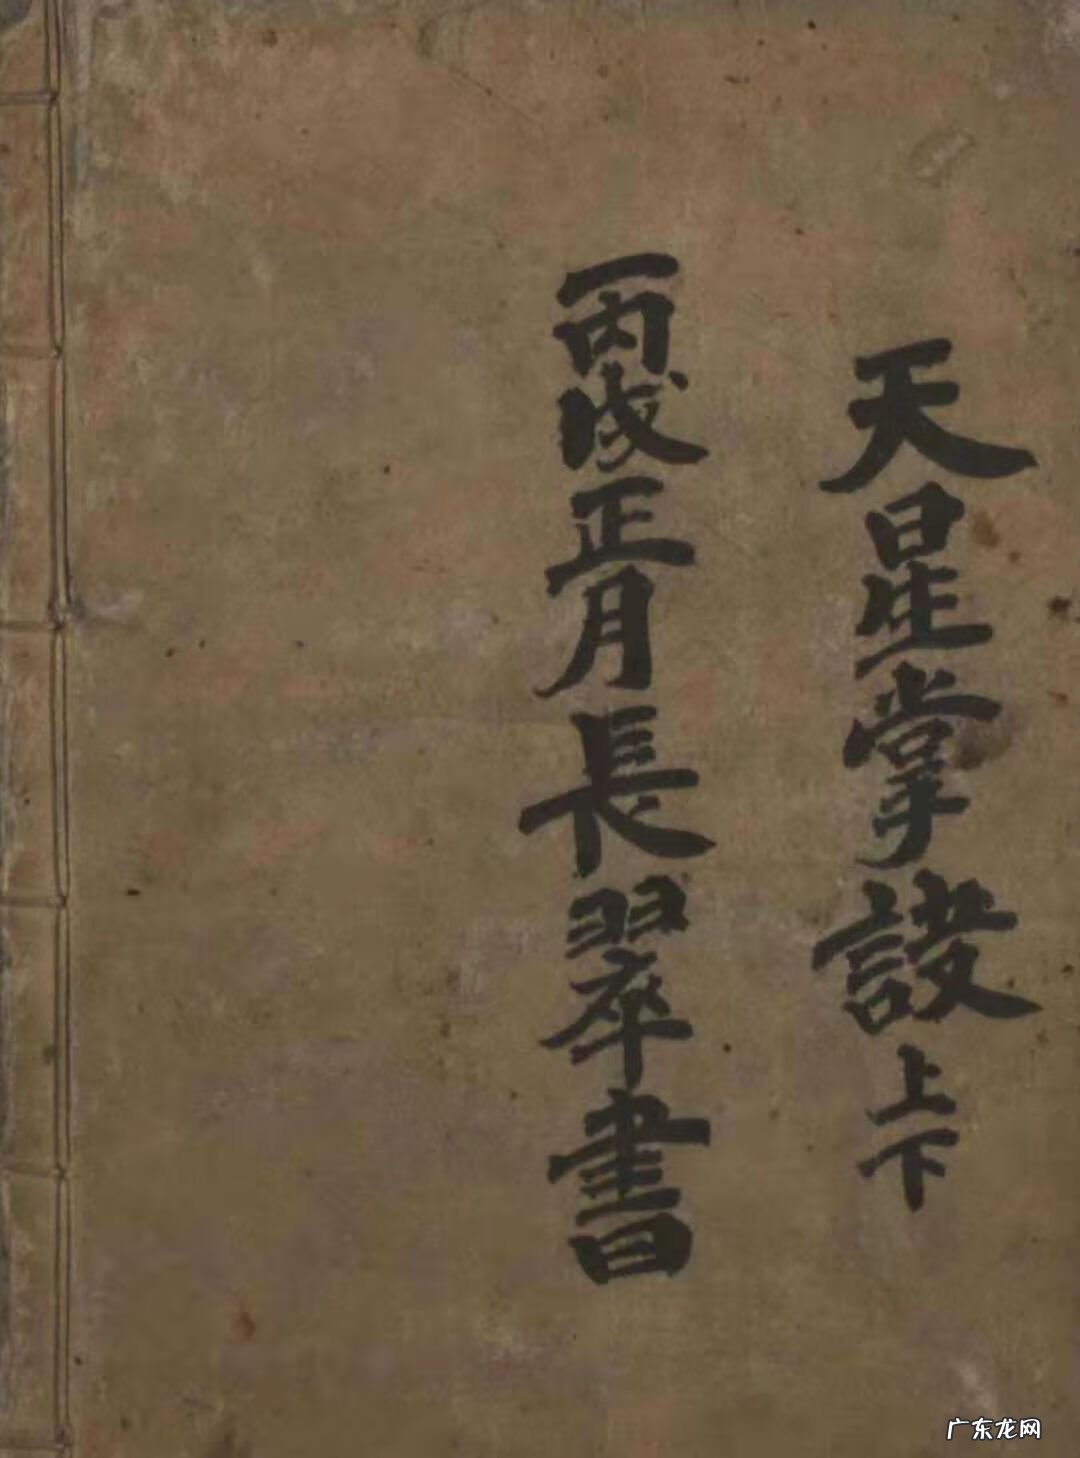 天星掌設上下
丙戌正月長翠書
广东龙网